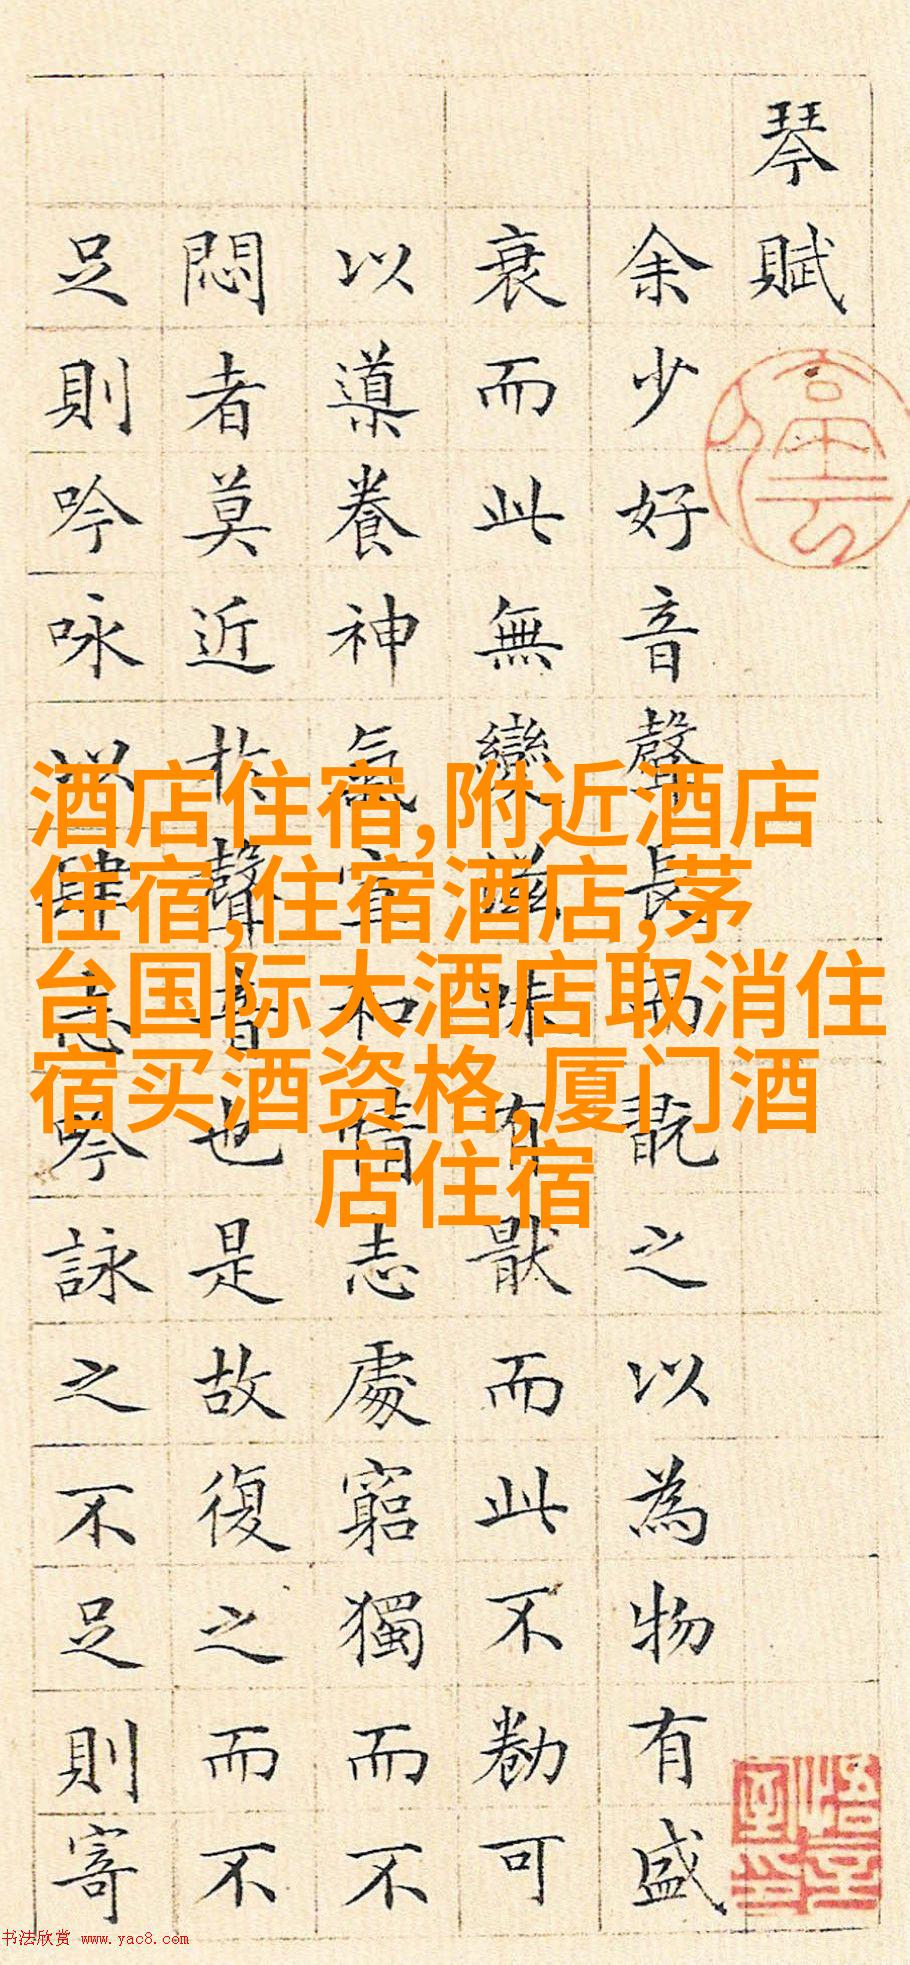 琴賦
余少好音聲長而翫之以為物有盛
衰而此無變滋味有猒而此不勌可
以導養神氣宣和情志處窮獨而不
悶者莫近於聲音也是故復之而不
足則吟咏以肆志吟詠之不足則寄
酒店住宿,附近酒店
住宿,住宿酒店,茅
台国际大酒店取消住
宿买酒资格,厦门酒
店住宿
停云
悟言室印
书法欣赏 www.yac8.com